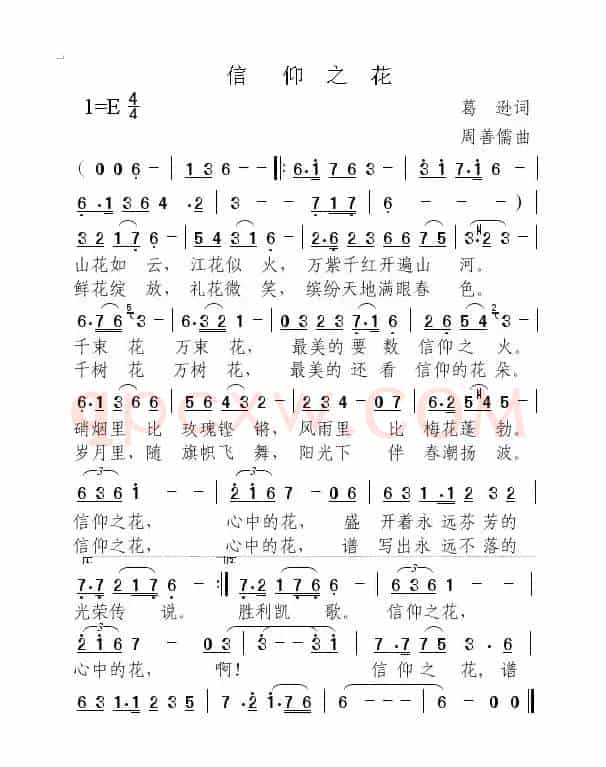 信 仰 之 花
1=E 4/4
葛 逊词
周善儒曲
( 0 0 6 - | 1 3 6 - |: 6·1 7 6 3 - | 3 1 7·6 3 - |
6·1 3 6 4 ·2 | 3 - - 7 1 7 | 6 - - - ) |
3 2 1 7 6 - | 5 4 3 1 6 - | 2·6 2 3 6 6 7 5 | 3·2 3 - |
山花如 云， 江花似 火， 万紫千红开遍山 河。
鲜花绽 放， 礼花微 笑， 缤纷天地满眼春 色。
6·7 6 5 3 - | 6·3 2 1 - | 0 3 2 3 7·1 6 | 2 6 5 4 2 3 - |
千束 花 万束 花， 最美的 要 数 信仰之 火。
千树 花 万树 花， 最美的 还 看 信仰的花 朵。
6·1 3 6 6 5 | 5 6 4 3 2 - | 2 1 2 3 4 - 0 7 | 6·2 5 4 5 - |
硝烟里 比 玫瑰铿 锵， 风雨里 比 梅花蓬 勃。
岁月里，随 旗帜飞 舞， 阳光下 伴 春潮扬 波。
6 3 6 1 - | 2 1 6 7 - 0 6 | 6 3 6 1·1 2 3 2 |
信仰之花， 心中的花， 盛 开着永 远芬芳的
信仰之花， 心中的花， 谱 写出永 远不落的
7·7 2 1 7 6 - :| 7·2 1 7 7 6 6 - | 6 3 6 1 - |
光荣传 说。 胜利凯 歌。 信仰之花，
2 1 6 7 - 0 3 | 3 - - 3 3 1 | 7·7 7 5 3 - 3 |
心中的花， 啊！ 信 仰 之 花，谱
6 3 3 1·1 2 3 5 | 7 0 2·1·7 6 6 | 6 - - - | 6 - 0 0 ||